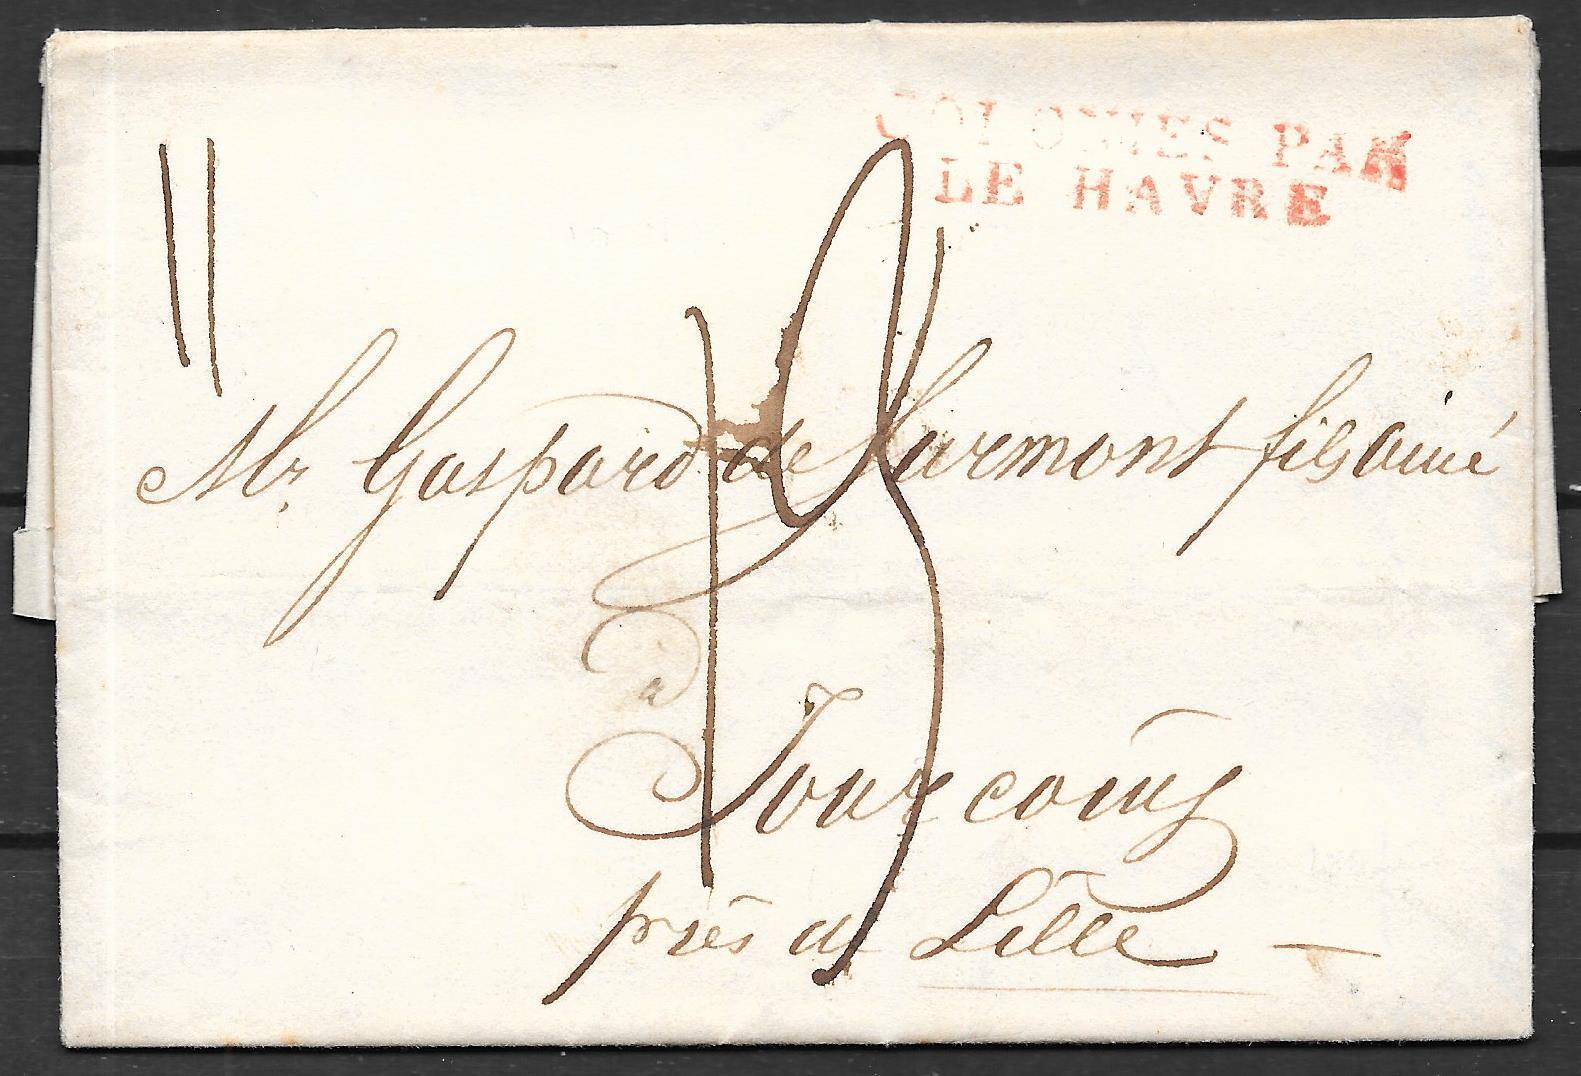 COLONIES PAR
LE HAVRE
11
Mr Gaspard de Surmont fils ainé
à
Tourcoing
près de Lille